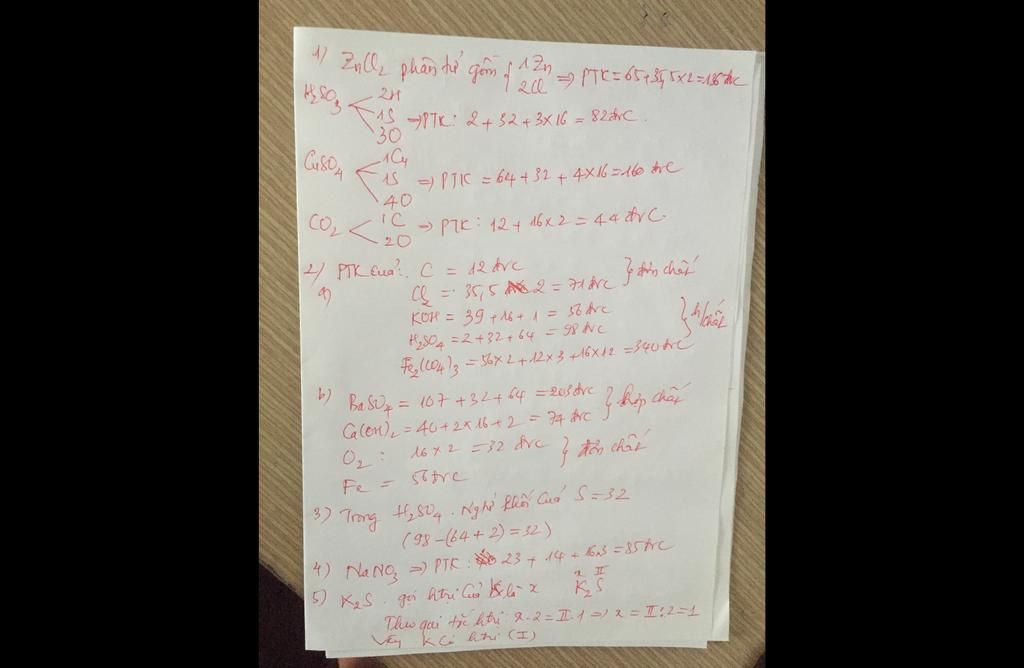 1) ZnCl2 phân tử gồm { 1Zn 2Cl => PTK = 65 + 35,5 x 2 = 136 đvC
H2SO3 < 2H 1S 3O => PTK: 2 + 32 + 3x16 = 82 đvC.
CuSO4 < 1Cu 1S 4O => PTK = 64 + 32 + 4x16 = 160 đvC
CO2 < 1C 2O => PTK: 12 + 16x2 = 44 đvC.
2) PTK của: C = 12 đvC
a) Cl2 = 35,5 2 = 71 đvC } đơn chất
KOH = 39 + 16 + 1 = 56 đvC
H2SO4 = 2 + 32 + 64 = 98 đvC } h/chất
Fe2(CO4)3 = 56x2 + 12x3 + 16x12 = 340 đvC
b) BaSO4 = 107 + 32 + 64 = 203 đvC
Ca(OH)2 = 40 + 2x16 + 2 = 74 đvC } hợp chất
O2: 16x2 = 32 đvC } đơn chất
Fe = 56 đvC
3) Trong H2SO4. Ngtử khối của S = 32
(98 - (64 + 2) = 32)
4) NaNO3 => PTK: 23 + 14 + 16.3 = 85 đvC
5) K2S. gọi htrị của K là x x II K2S
Theo qui tắc htrị: x.2 = II.1 => x = II:2 = 1
Vậy K có htrị (I)